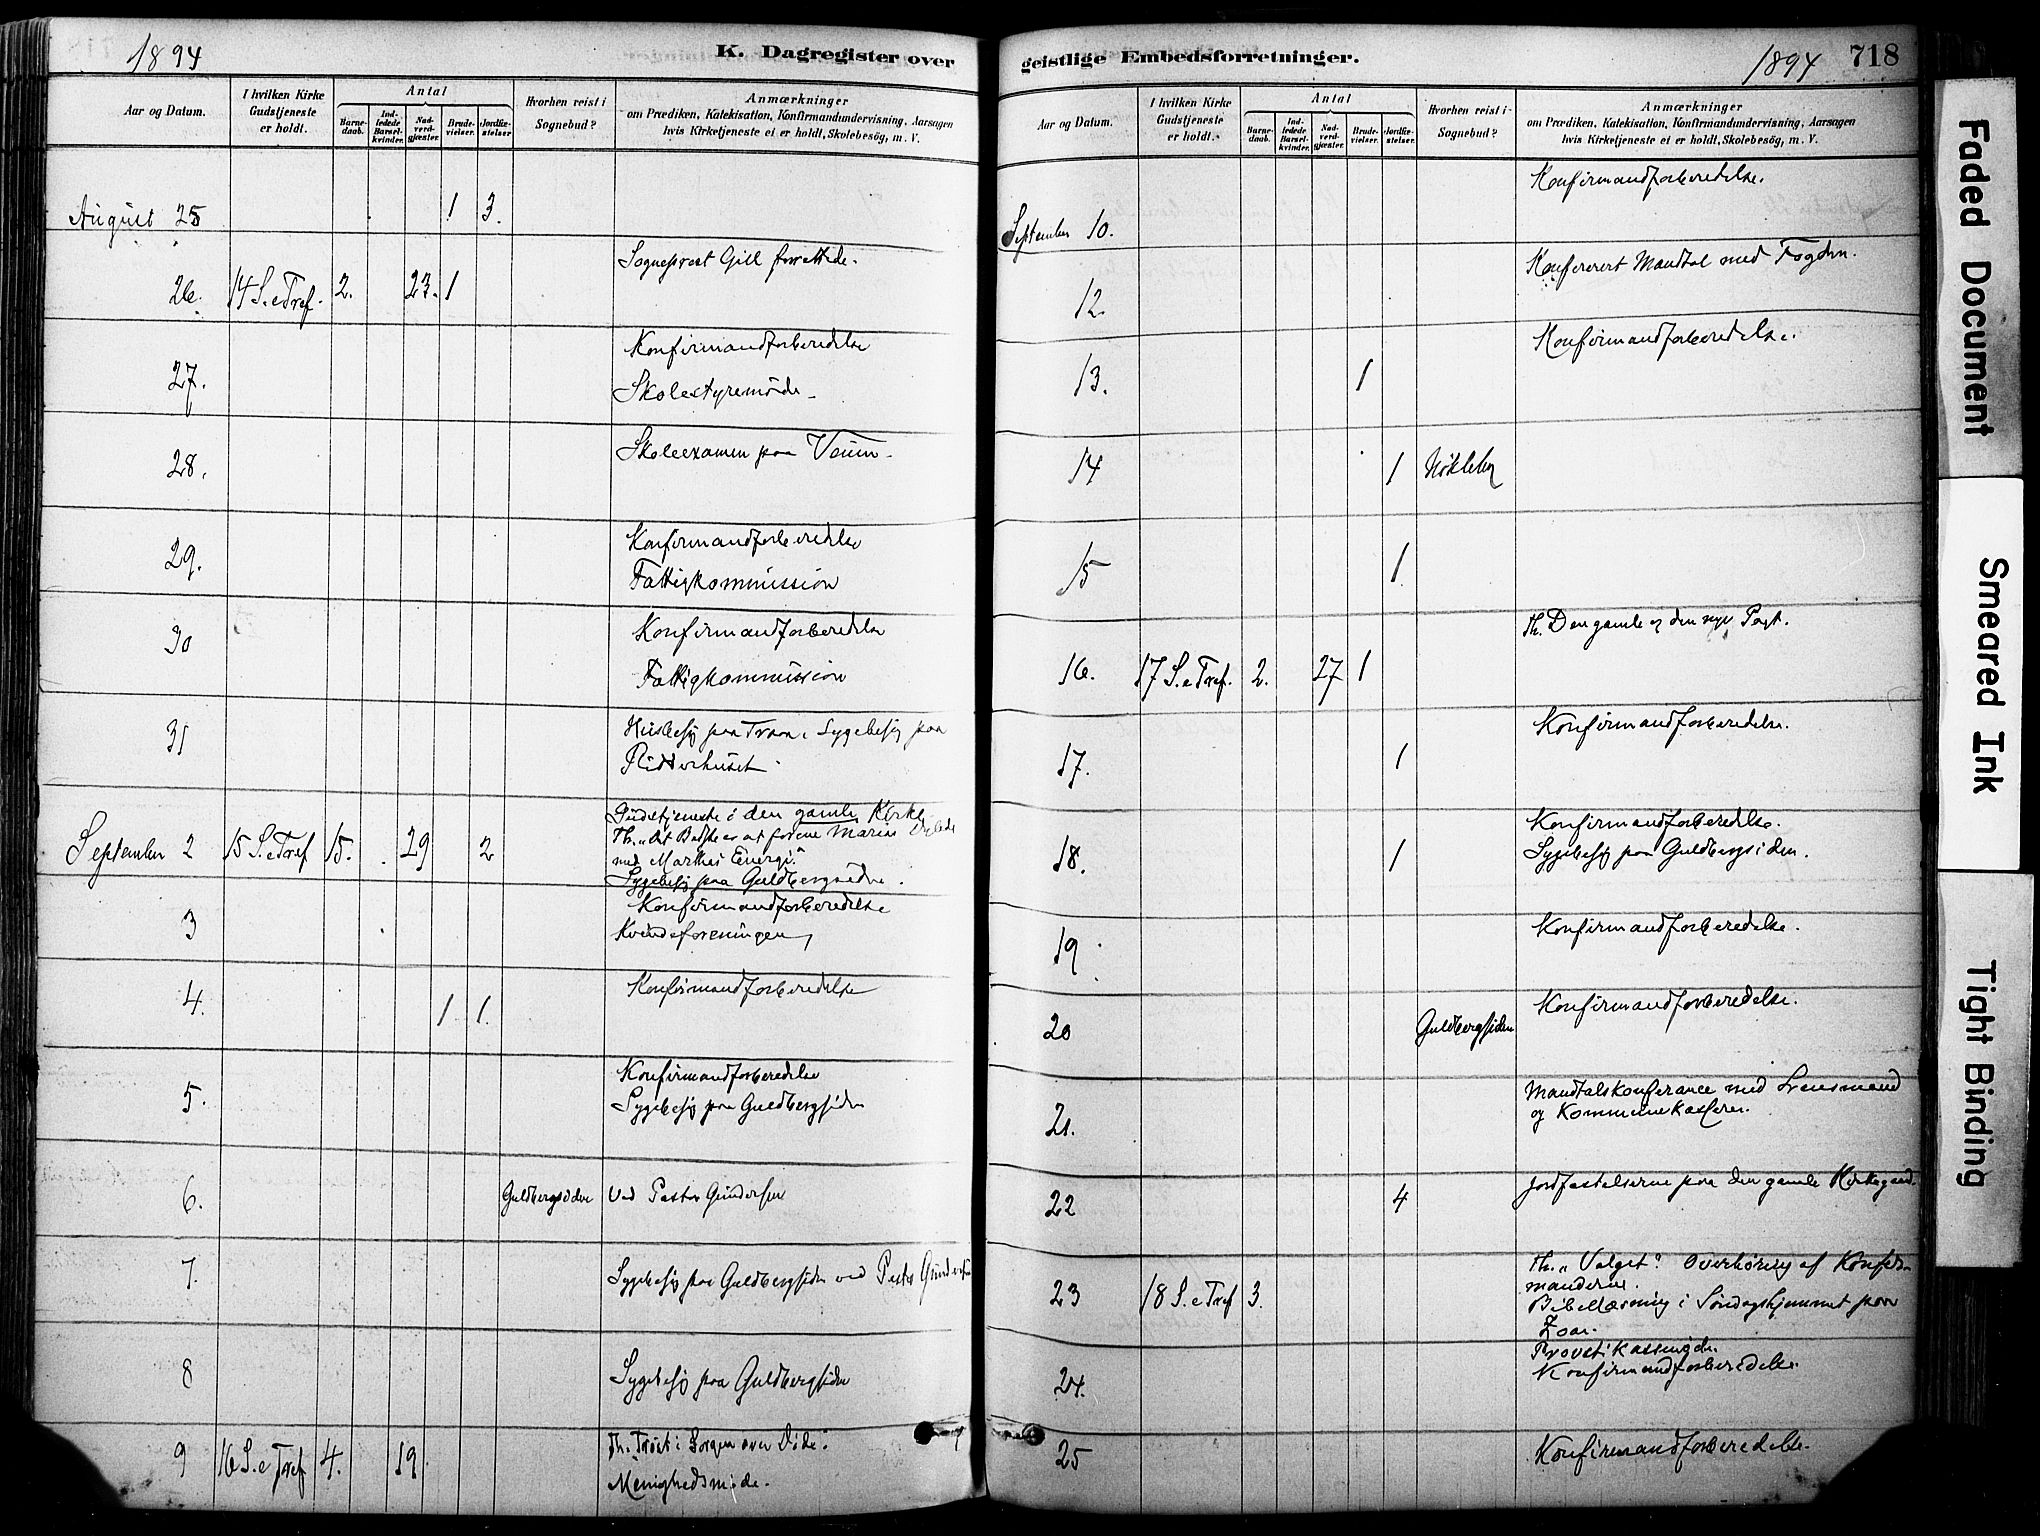 1894
K. Dagregister over
Aar og Datum.
I hvilken Kirke Gudstjeneste er holdt.
Antal
Barnedaab.
Indledede Barselkvinder.
Nadverdgjæster.
Brudevielser.
Jordfæstelser.
Hvorhen reist i Sognebud?
Anmærkninger
om Prædiken, Katekisation, Konfirmandundervisning, Aarsagen
hvis Kirketjeneste ei er holdt, Skolebesög, m. V.
August 25 1 3.
26. 14 S. e Tref. 2. 23. 1 Sogneprest Gill forrettede.
27. Konfirmandforberedelse
Skolestyremöde
28. Skoleexamen paa Veum.
29. Konfirmandforberedelse
Fattigkommission
30 Konfirmandforberedelse
Fattigkommission
31 Husbesög paa Trara, Sygebesög paa
September 2 15 S. e Tref 15. 29 2 Gudstjeneste i den gamle Kirke
Th. "Det Bedste er at forene Marias
med Marthas Energi."
Sygebesög paa Guldbergsiden.
3 Konfirmandforberedelse
Kvindeforeningen
4. 1 1. Konfirmandforberedelse
5. Konfirmandforberedelse
Sygebesög paa Guldbergsiden
6. Guldbergsiden ved Pastor Gundersen
7. Sygebesög paa Guldbergsiden ved Pastor Gundersen
8 Sygebesög paa Guldbergsiden
9 16 S. e Tref 4. 19 Th. Tröst i Sorgen over Döde.
Menighedsmöde.
geistlige Embedsforretninger.
1894
718
Aar og Datum.
I hvilken Kirke Gudstjeneste er holdt.
Antal
Barnedaab.
Indledede Barselkvinder.
Nadverdgjæster.
Brudevielser.
Jordfæstelser.
Hvorhen reist i Sognebud?
Anmærkninger
om Prædiken, Katekisation, Konfirmandundervisning, Aarsagen
hvis Kirketjeneste ei er holdt, Skolebesög, m. V.
September 10. Konfirmandforberedelse.
12. Konfereret Mandtal med Fogden.
13. 1 Konfirmandforberedelse.
14 1 Nökleby
15 1
16. 17 S. e Tref. 2. 27 1 Th. Den gamle og den nye Pagt.
17. 1 Konfirmandforberedelse.
18. 1 Konfirmandforberedelse.
Sygebesög paa Guldbergsiden.
19 Konfirmandforberedelse.
20 Guldbergsiden Konfirmandforberedelse.
21. Mandtalskonferance med Lensmand
og Kommunekasserer.
22 4 Jordfæstelserne paa den gamle Kirkegaard.
23 18 S. e Tref 3. Th. "Valget". Overhöring af Konfirmanderne.
Bibellæsning i Söndagshjemmet paa
Zoar.
24. Provstikassemöde.
Konfirmandforberedelse
25 Konfirmandforberedelse.
Faded Document
Smeared Ink
Tight Binding